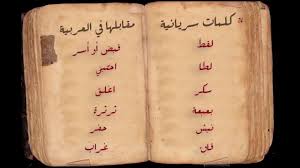 كلمات سريانية
لقط
لطا
سكر
بعبعة
نبش
قاق
مقابلها في العربية
قبض أو أسر
اختبئ
اغلق
ثرثرة
حفر
غراب